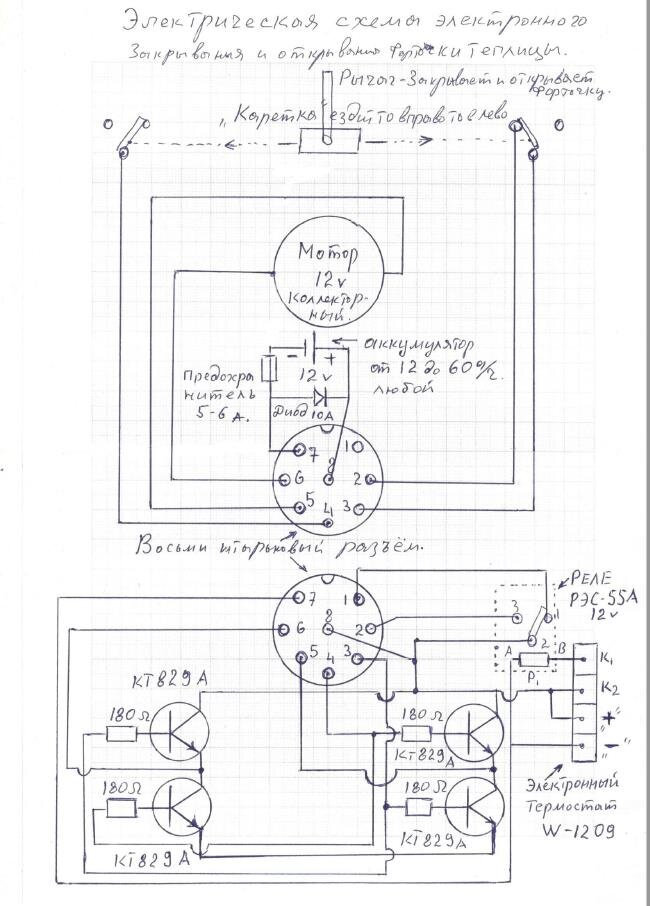 Электрическая схема электронного
Закрывания и открывания Форточки теплицы.
Рычаг-Закрывает и открывает
Форточку.
„Каретка ездит то вправо то в лево
Мотор
12v
Коллектор-
ный.
аккумулятор
от 12 до 60 а/ч.
любой
- +
12v
Предохра
нитель
5-6 А.
Диод 10А
7 1
8
6 2
5 3
4
Восьми штырьковый разъём.
РЕЛЕ
РЭС-55А
12v
7 1
8
6 2
5 3
4
3 1
2
А В
Р₁
К₁
К₂
"+"
"-"
КТ829А
180Ω
180Ω
КТ829А
180Ω
КТ829А
180Ω
КТ829А
Электронный
Термостат
W-1209